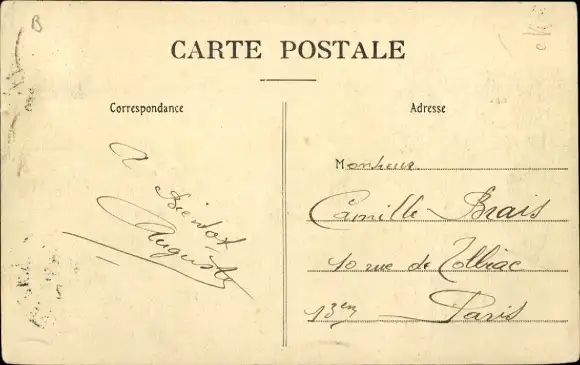 B
CARTE POSTALE
Correspondance
Adresse
A
Bientot
Auguste
Monsieur
Camille Brais
10 rue de Tolbiac
13em Paris